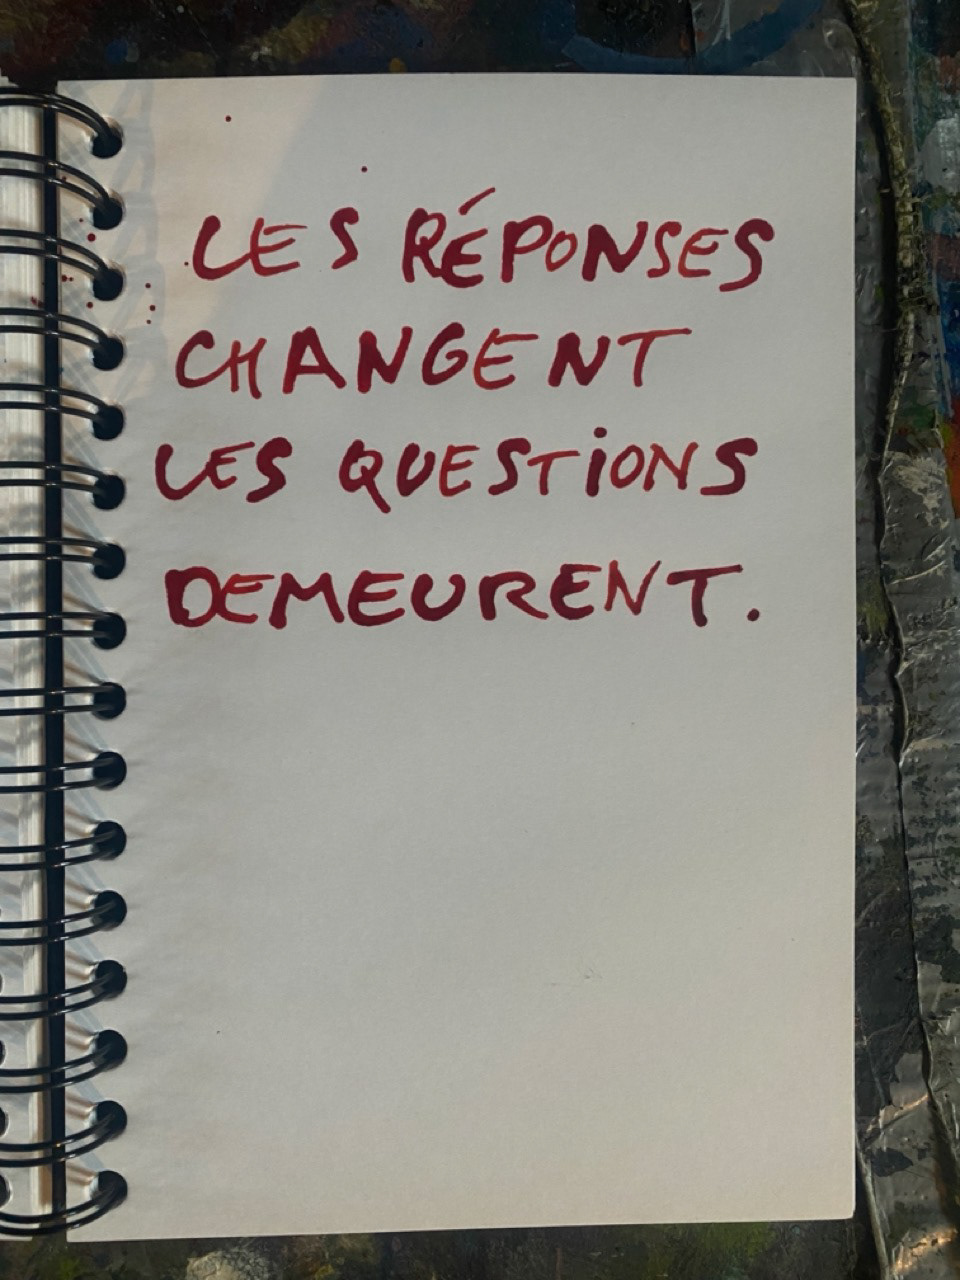 LES RÉPONSES
CHANGENT
LES QUESTIONS
DEMEURENT.